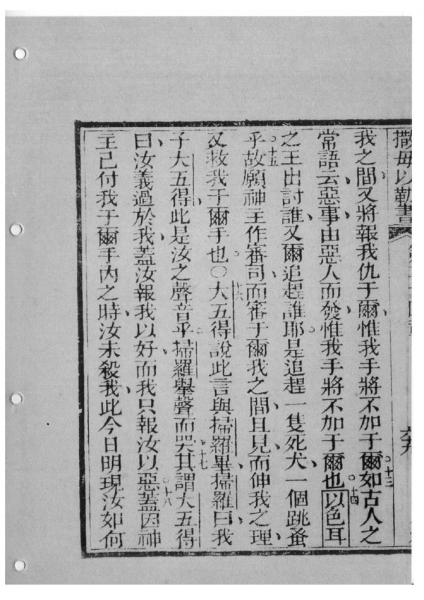 撒母以勒書
我之間又將報我仇于爾惟我手將不加于爾如古人之
十三
常語云惡事由惡人而發惟我手將不加于爾也以色耳
十四
之王出討誰又爾追趕誰耶是追趕一隻死犬一個跳蚤
十五
乎故願神主作審司而審于爾我之間且見而伸我之理
又救我于爾手也○大五得說此言與掃羅畢掃羅曰我
十六
子大五得此是汝之聲音乎掃羅舉聲而哭其謂大五得
十七
曰汝義過於我蓋汝報我以好而我只報汝以惡蓋因神
十八
主已付我于爾手內之時汝未殺我此今日明現汝如何